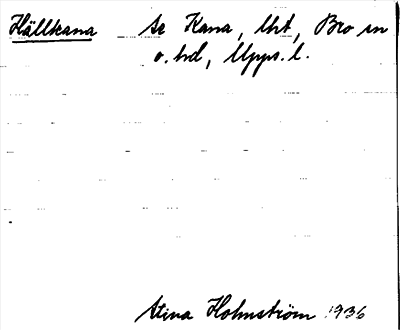 Hällkana Se Kana, Uht, Bro sn
o. hd, Upps. l.
Stina Holmström 1936